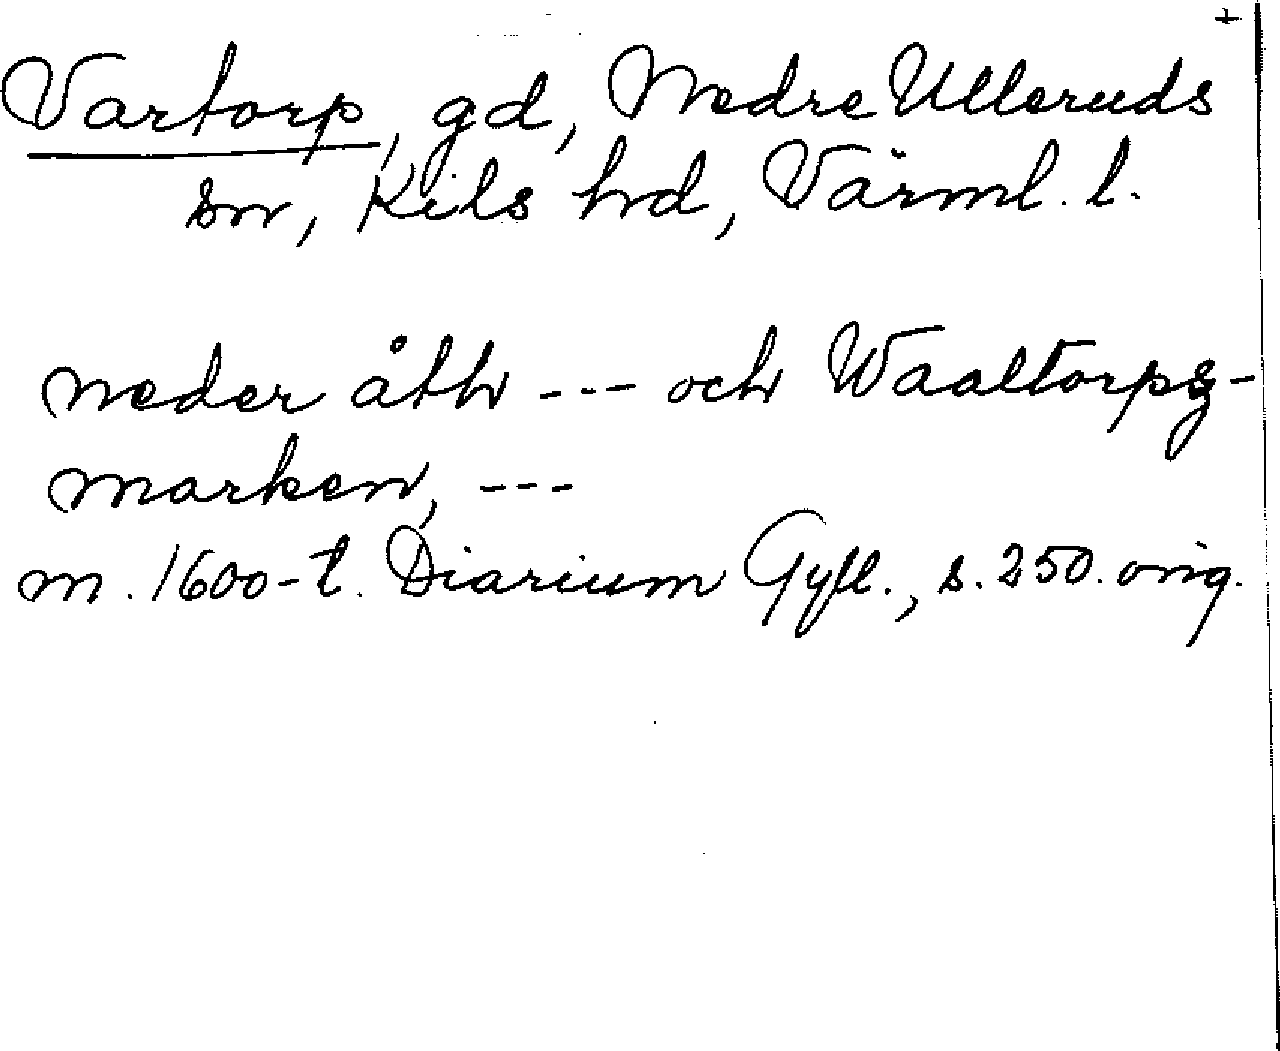 +
Vartorp, gd, Nedre Ulleruds
sn, Kils hd, Värml. l.
neder åth --- och Waaltorpz-
marken, ---
m. 1600-t. Diarium Gyll., s. 250. orig.